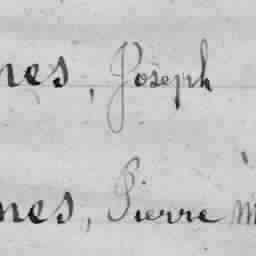 nes, Joseph
nes, Pierre